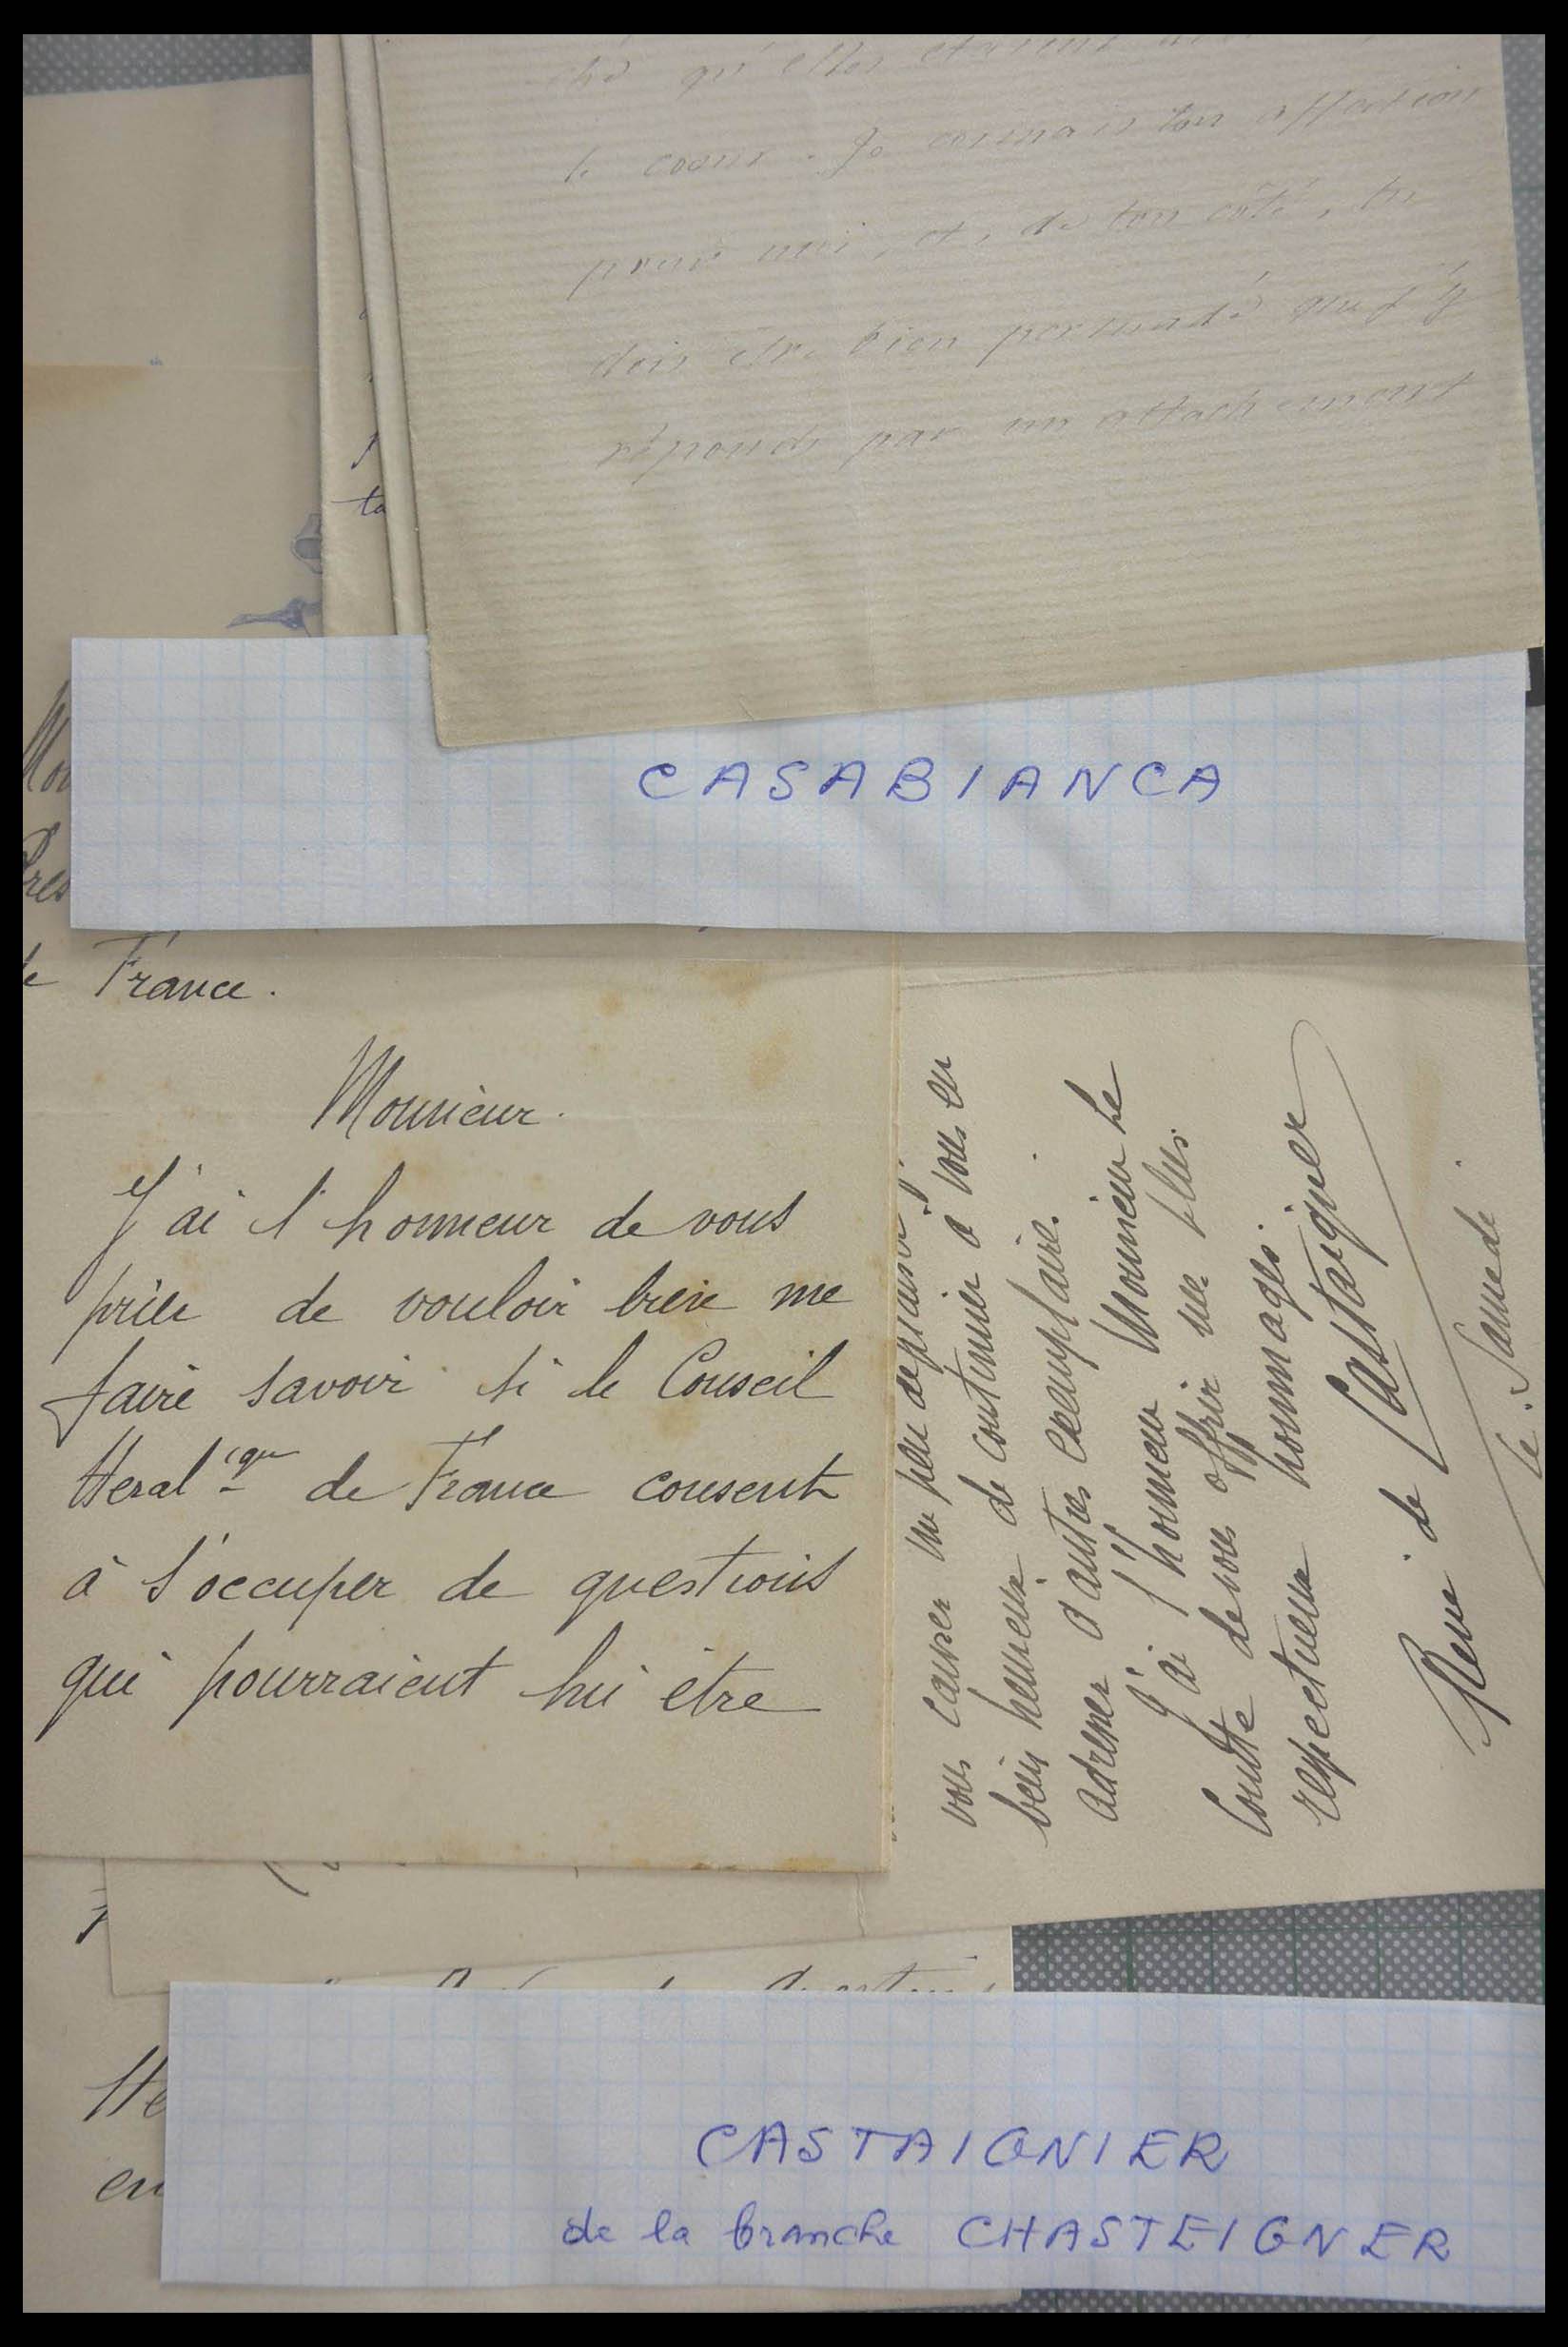 qu'elles étaient
le coeur. Je connais ton affection
pour moi, et, de ton côté, tu
dois être bien persuadé que j'y
réponds par un attachement
ta
CASABIANCA
Mon
Pres
de France.
Monsieur.
J'ai l'honneur de vous
prier de vouloir bien me
faire savoir si le Conseil
Héral^ique de France consent
à s'occuper de questions
qui pourraient lui être
vous causer un peu de
bien heureux de continuer à vous en
adresser d'autres exemplaire.
J'ai l'honneur Monsieur le
Comte de vous offrir mes plus
respectueux hommages.
René de Castaignier
le. Samedi
He
en
CASTAIGNIER
de la branche CHASTEIGNER